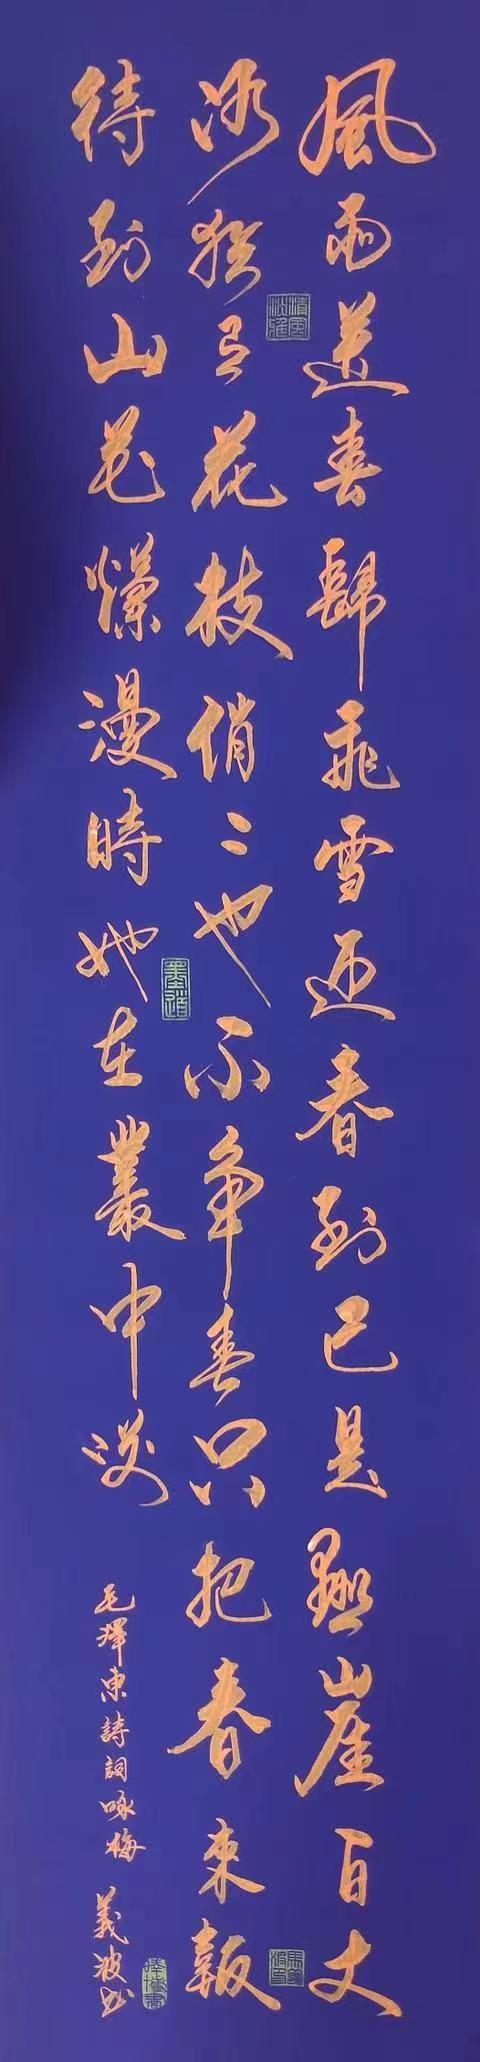 風雨送春歸飛雪迎春到已是懸崖百丈
冰猶有花枝俏〻也不争春只把春來報
待到山花爛漫時她在叢中笑
毛澤東詩詞咏梅 義波书
墨道